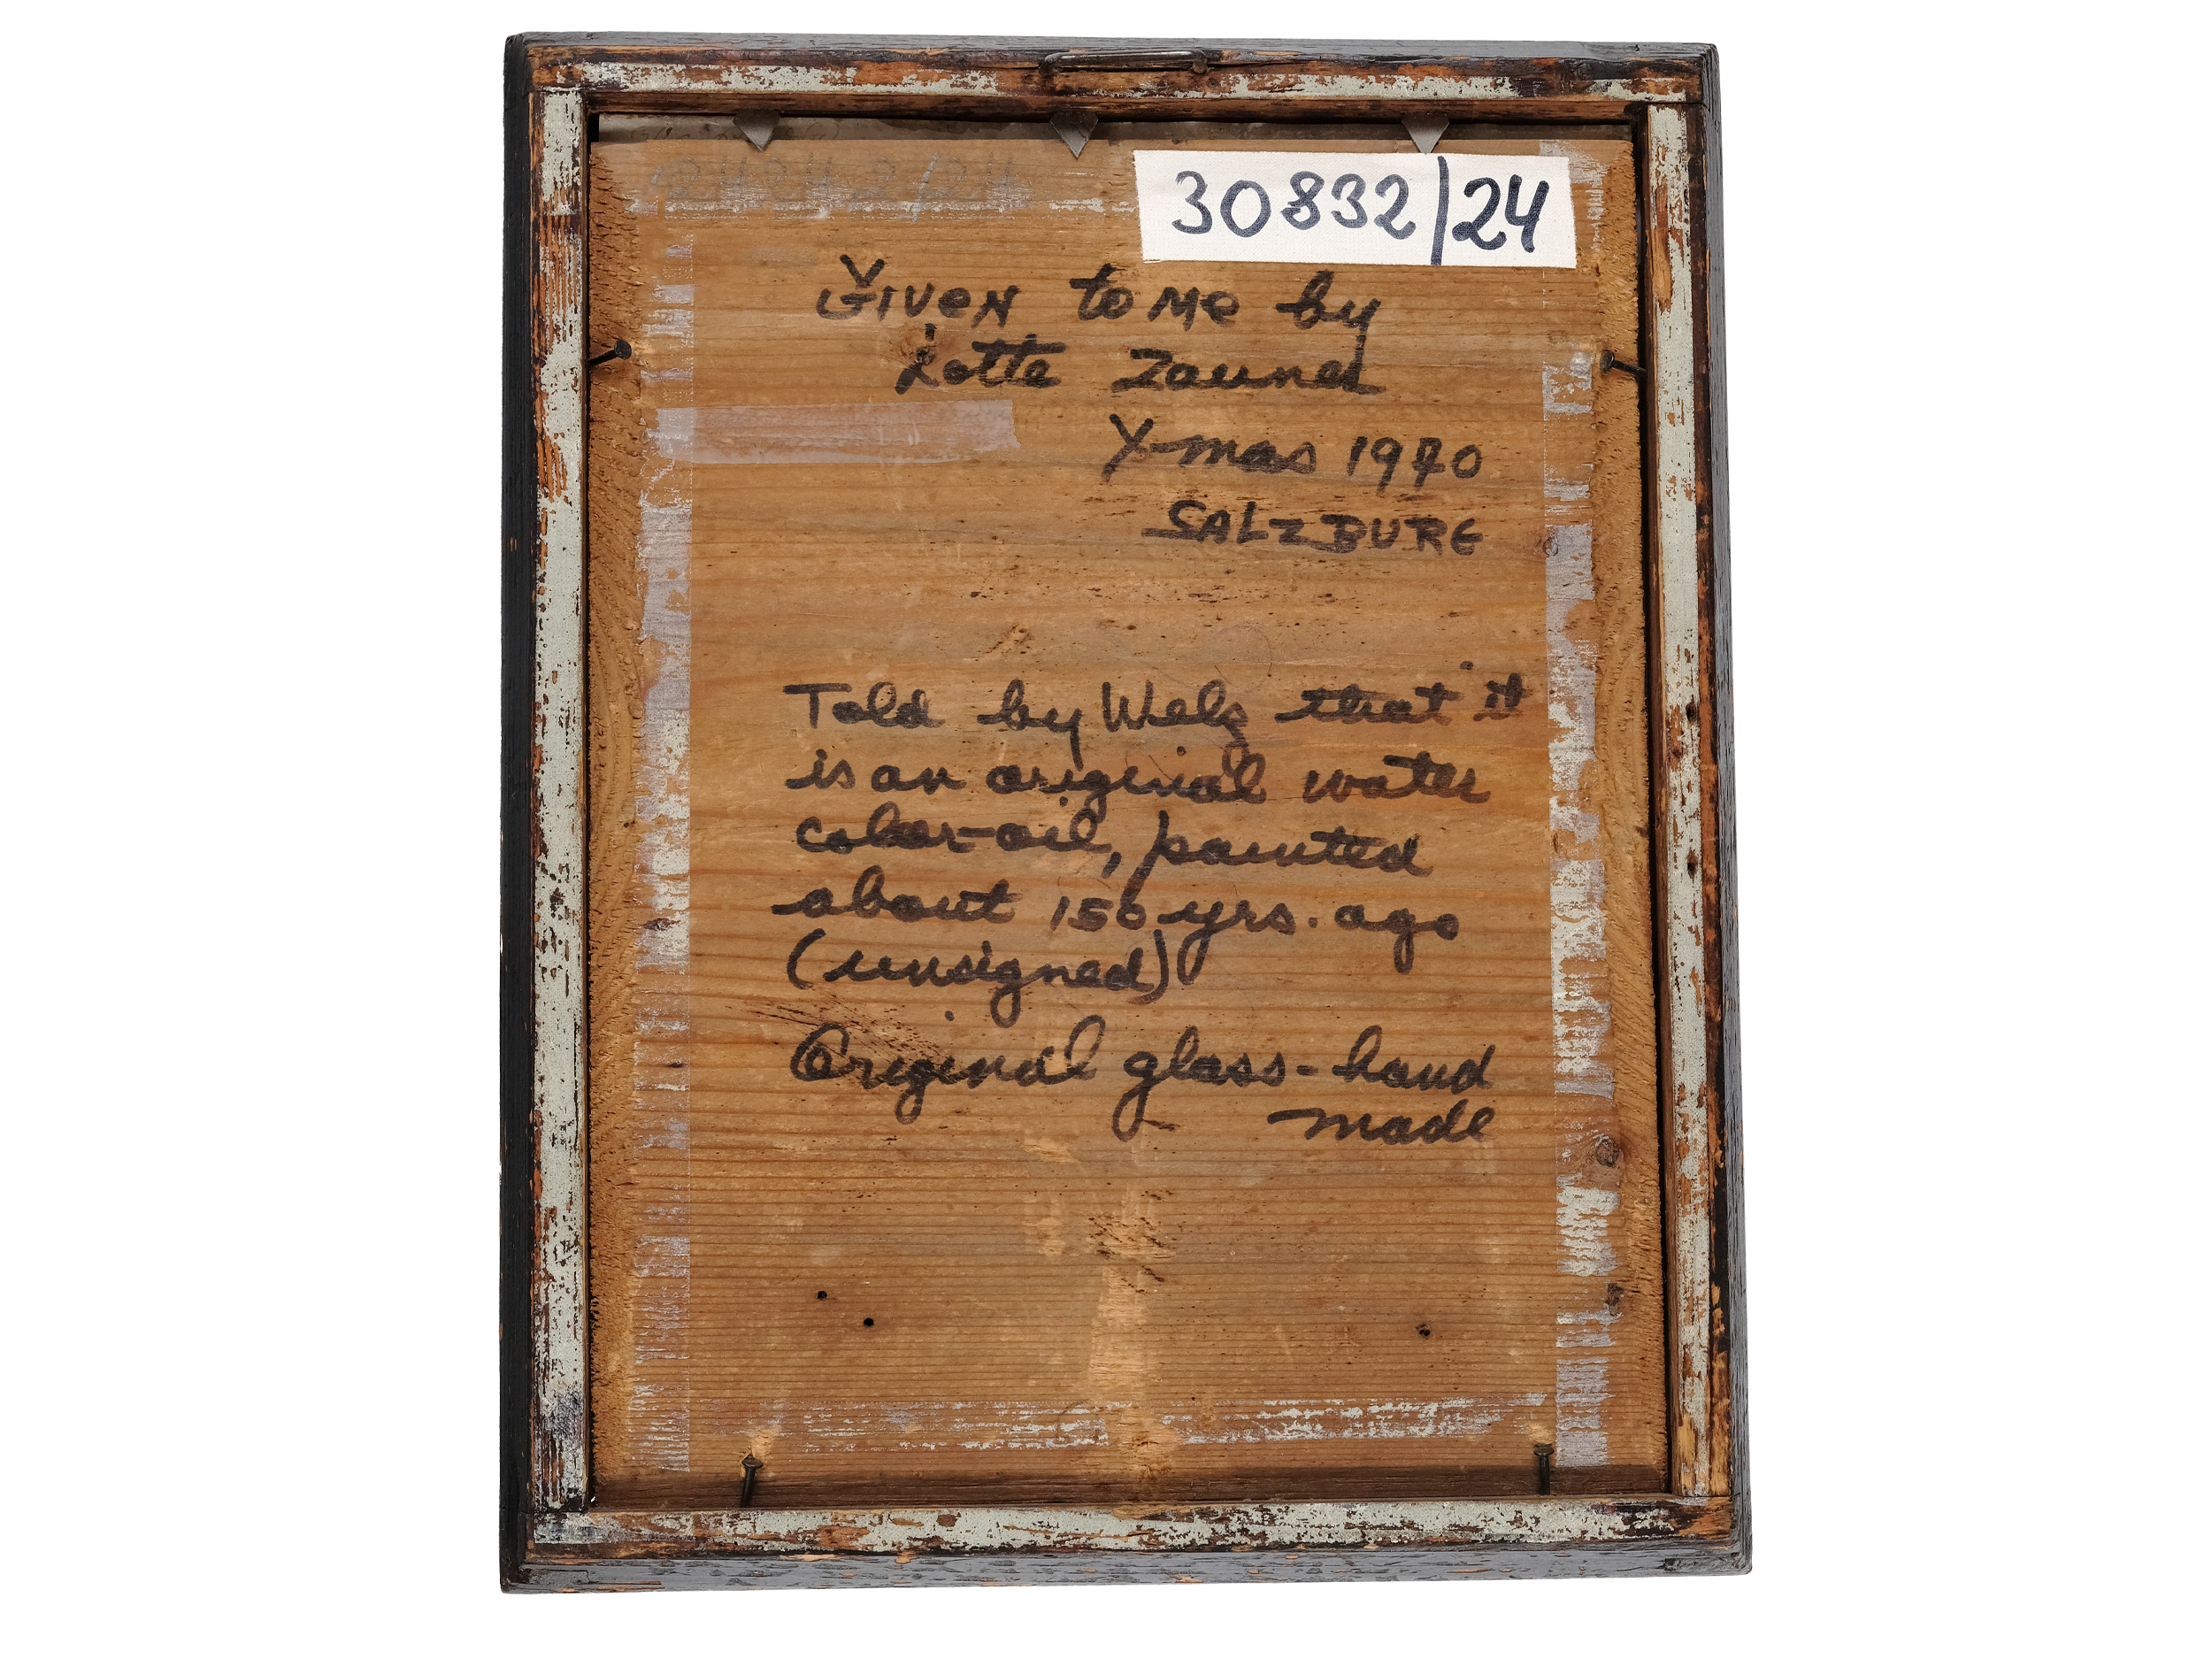 30832/24
Given to Me by
Lotte Zauner
X-mas 1970
SALZBURG
Told by Welz that it
is an original water
color-oil, painted
about 150 yrs. ago
(unsigned)
Original glass-hand
made